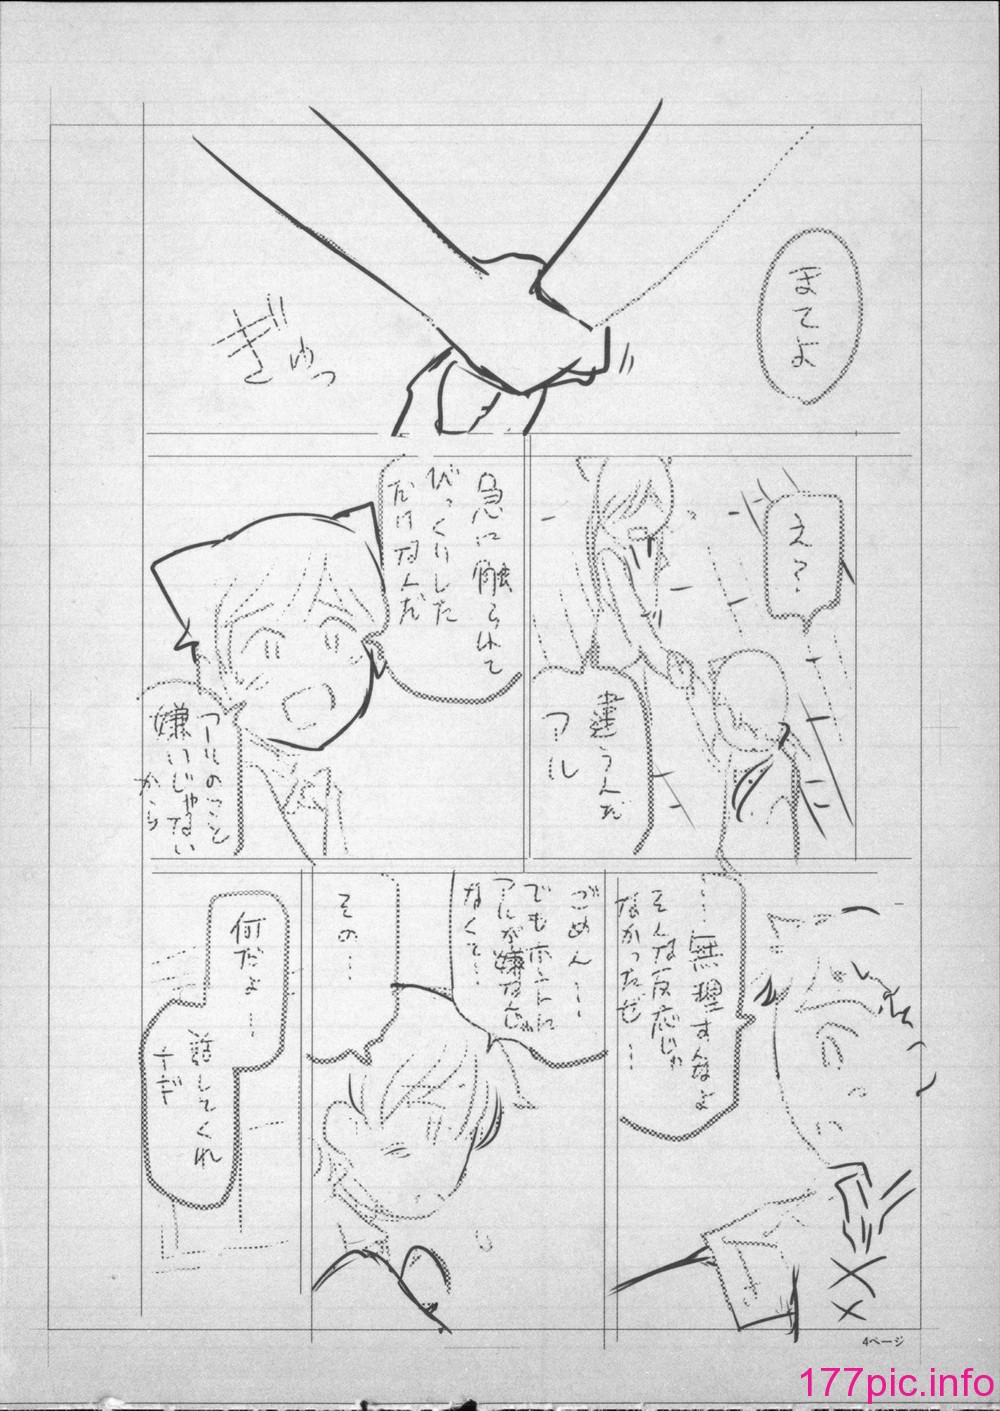 まてよ
ぎゅっ
え？
違うんだ
アル
急に触られて
びっくりした
だけなんだ
アルのこと
嫌いじゃない
から
…無理すんなよ
そんな反応じゃ
なかったぜ…
ごめん…
でもホントに
アルが嫌なんじゃ
なくて…
その…
何だよ…
話してくれ
4ページ
177pic.info